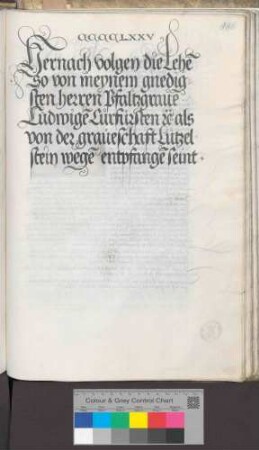 CCCCCLXXV
Hernach volgen die Lehe̅
So von meynem gnedig
sten herren Pfaltzgraue̅
Ludwige̅ Curfürsten ꝛc als
von der graueschaft Lutzel
stein wege̅ entpfange̅ seint.
Colour & Grey Control Chart